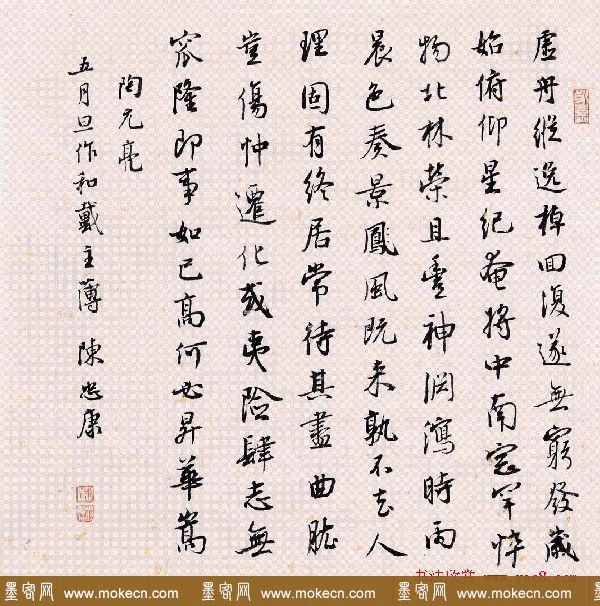 虛舟縱逸棹回復遂無窮發歲
始俯仰星紀奄將中南窓罕悴
物北林榮且豐神渊瀉時雨
晨色奏景鳳風既來孰不去人
理固有終居常待其盡曲肱
豈傷忡遷化或夷險肆志無
窊隆即事如已高何必昇華嵩
陶元亮
五月旦作和戴主薄 陳忠康
墨客网 www.mokecn.com 墨客网 www.mokecn.com 墨客网 www.mokecn.com